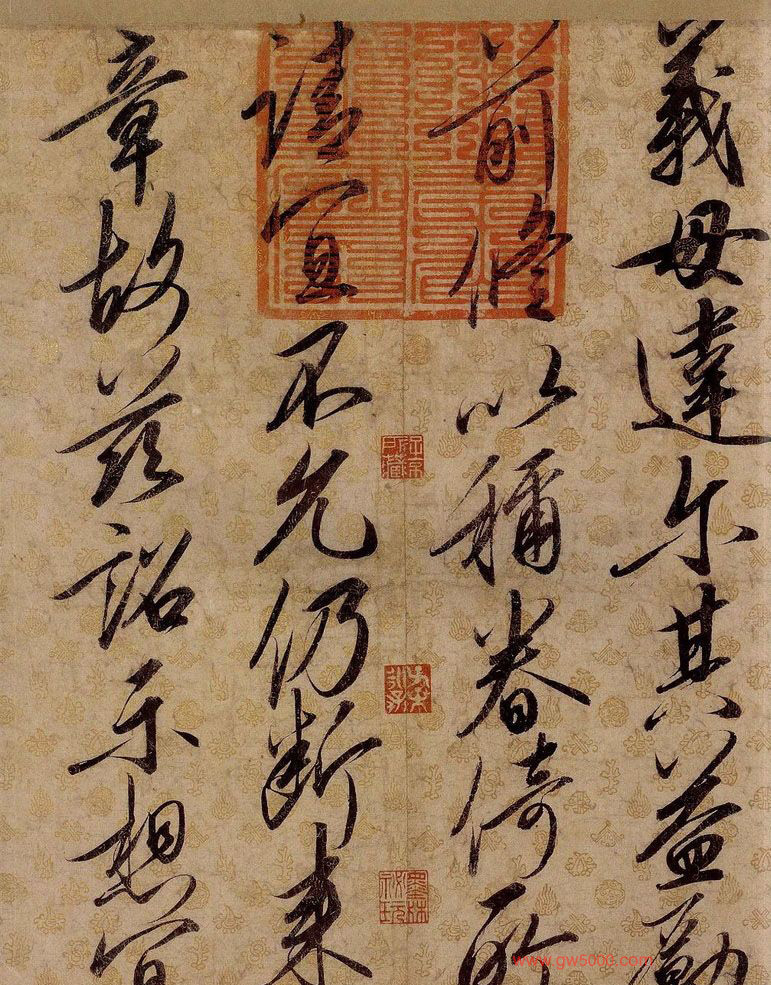 義毋違尔其益
前修以稱眷倚所
請宜不允仍斷來
章故茲詔示想宜
墨林祕玩
www.gw5003.com